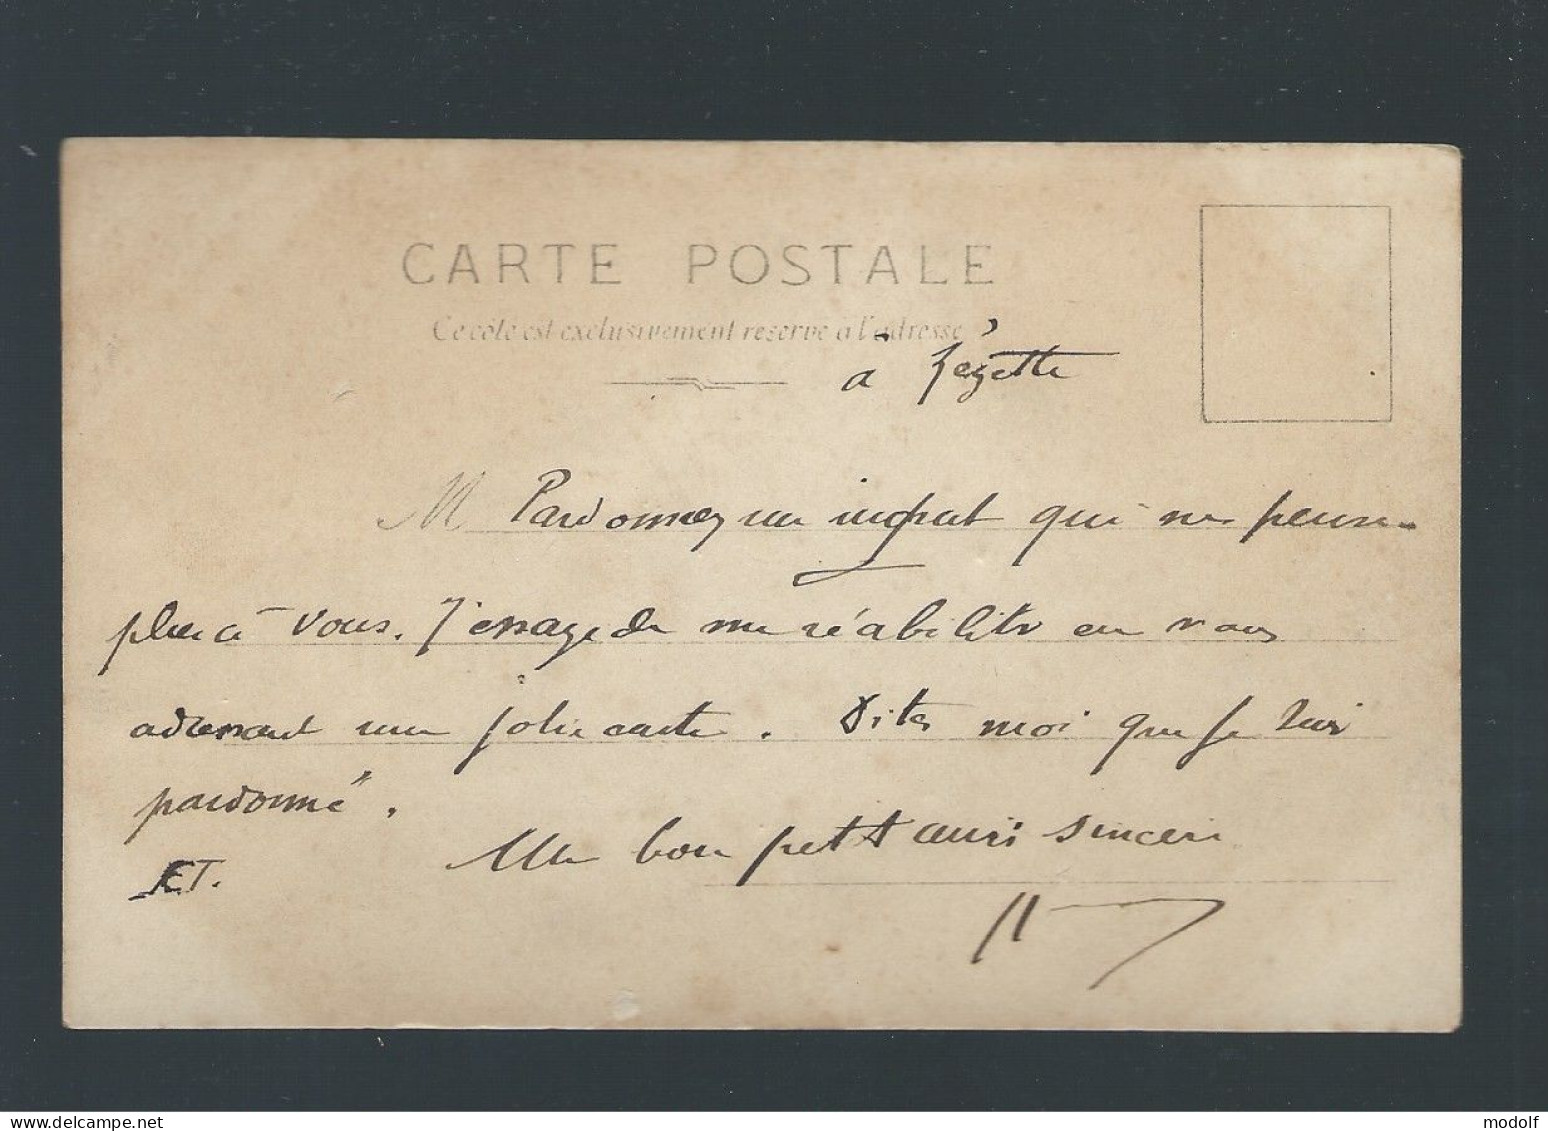 CARTE POSTALE
Ce côté est exclusivement réservé à l'adresse
à Zézette
M Pardonnez un ingrat qui ne pense
plus à vous. J'essaye de me réabiliter en vous
adressant une jolie carte. Dites moi que je suis
pardonné.
Un bon petit ami sincère
ET.
modolf